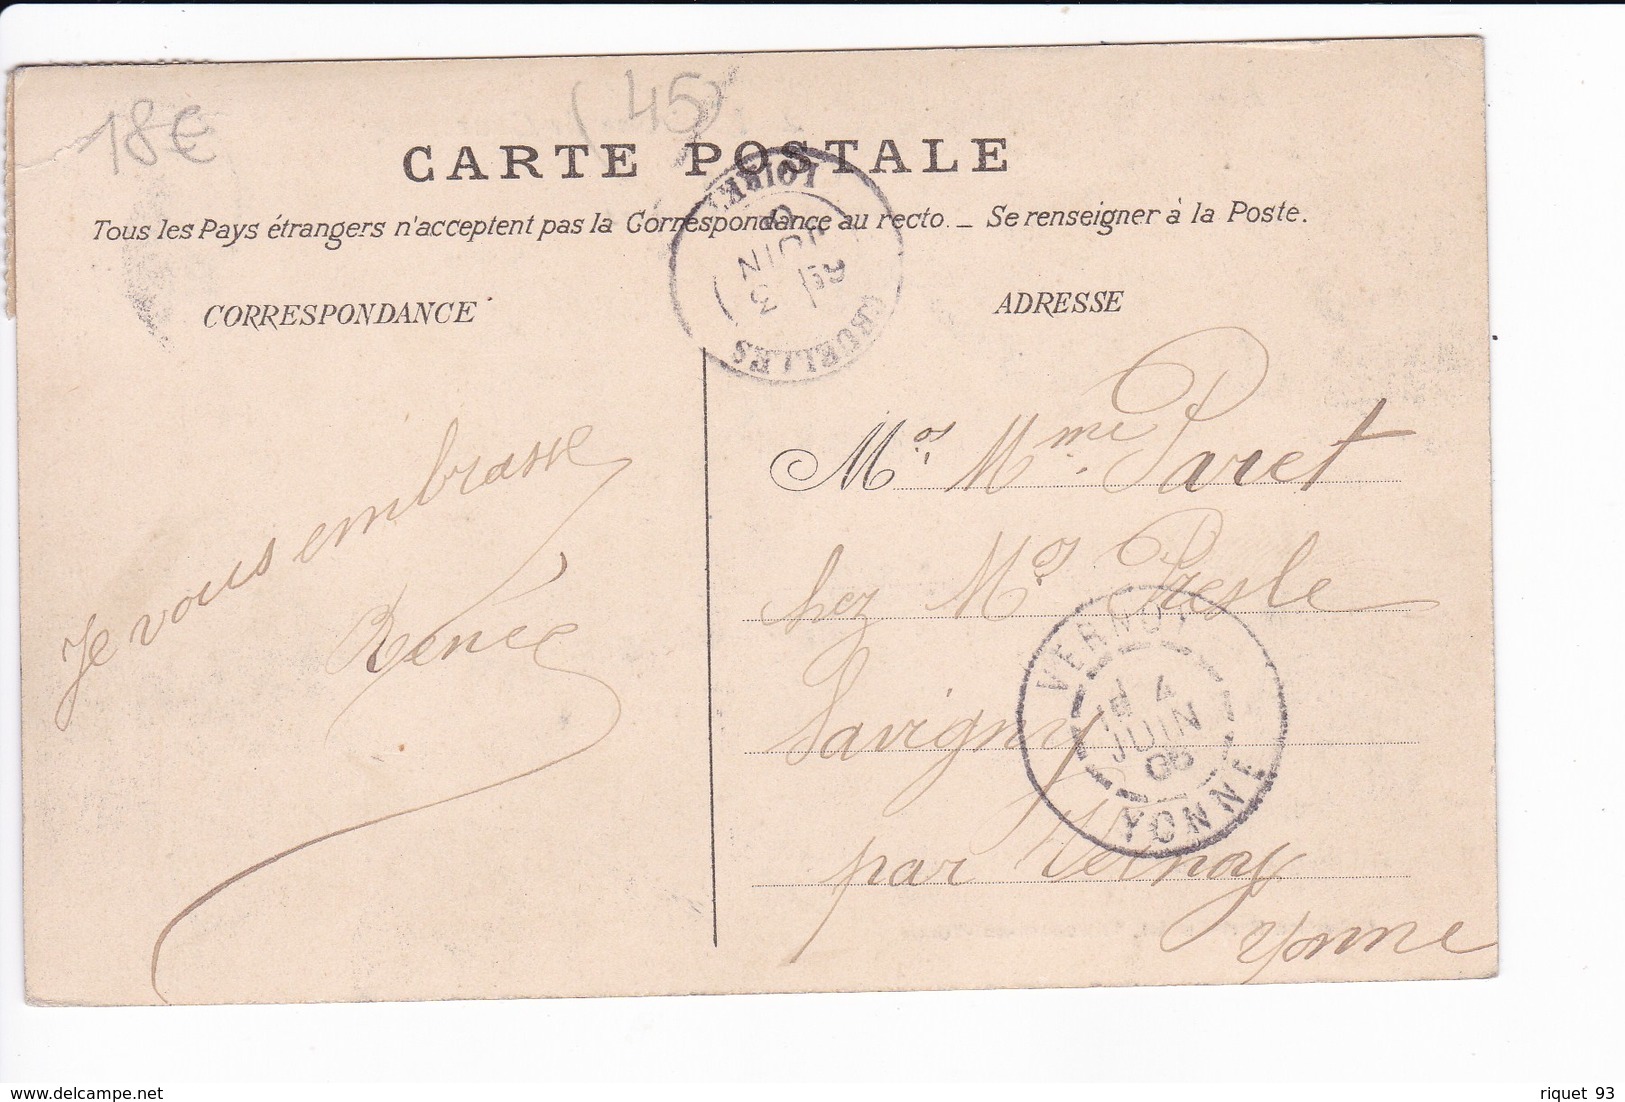 18€
(45)
CARTE POSTALE
Tous les Pays étrangers n'acceptent pas la Correspondance au recto. _ Se renseigner à la Poste.
CORRESPONDANCE
ADRESSE
LOIRET
3
JUIN
Je vous embrasse
Renée
Mr. Mme. Paret
chez Mr. Presle
Savigny
par Vernoy
Yonne
VERNOY
4
JUIN
06
YONNE
riquet 93